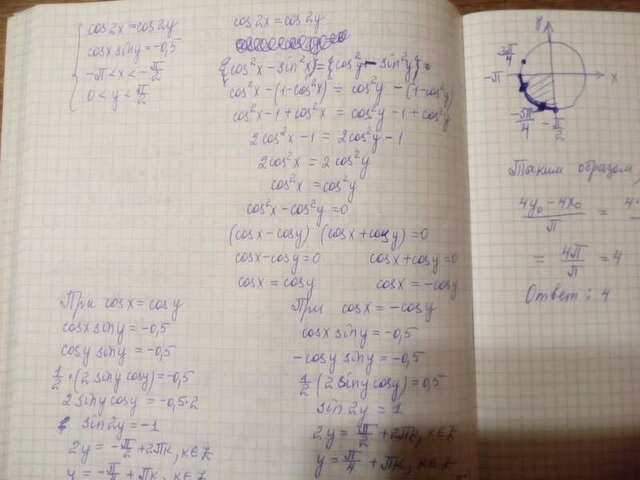 cos2x = cos2y
cosx siny = -0,5
-π < x < -π/2
0 < y < π/2
cos2x = cos2y
{cos²x - sin²x} = {cos²y - sin²y} =
cos²x - (1 - cos²x) = cos²y - (1 - cos²y)
cos²x - 1 + cos²x = cos²y - 1 + cos²y
2cos²x - 1 = 2cos²y - 1
2cos²x = 2cos²y
cos²x = cos²y
cos²x - cos²y = 0
(cosx - cosy) (cosx + cosy) = 0
cosx - cosy = 0 cosx + cosy = 0
cosx = cosy cosx = -cosy
При cosx = cosy
cosx siny = -0,5
cosy siny = -0,5
1/2 · (2siny cosy) = -0,5
2siny cosy = -0,5·2
sin2y = -1
2y = -π/2 + 2πk, k∈Z
y = -π/4 + πk, k∈Z
При cosx = -cosy
cosx siny = -0,5
-cosy siny = -0,5
1/2 (2siny cosy) = 0,5
sin2y = 1
2y = π/2 + 2πk, k∈Z
y = π/4 + πk, k∈Z
3π/4
-π
x
-3π/4
-π/2
Таким образом,
(4y₀ - 4x₀)/π = 4·
= 4π/π = 4
Ответ: 4